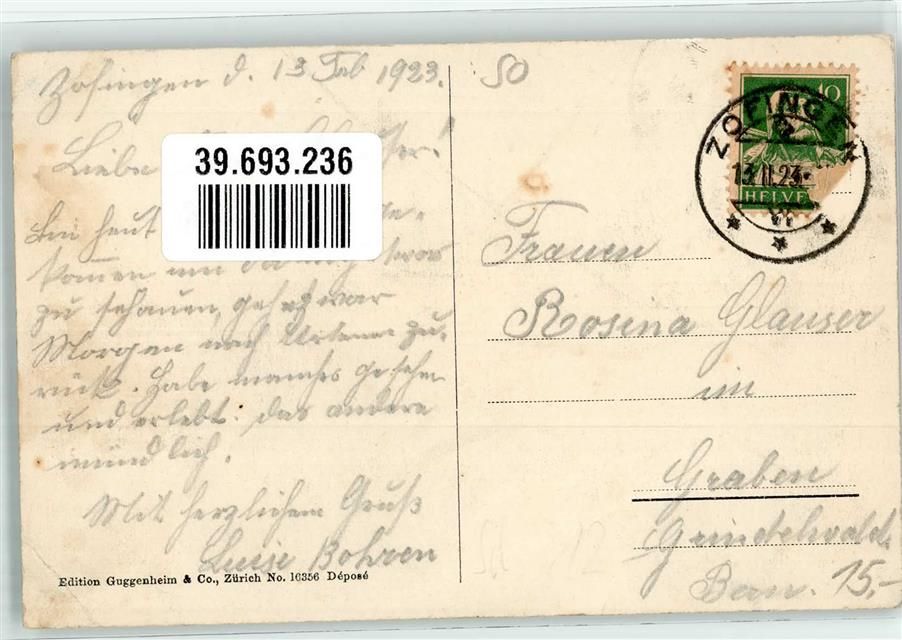 Zofingen d. 13 Feb 1923.
Liebe
Bin heut
kommen um
zu schauen, geh
Morgen nach zu-
rück. Habe manches gesehen
und erlebt. das andere
mündlich.
Mit herzlichem Gruß
Luise Bohren
Edition Guggenheim & Co., Zürich No. 16356 Déposé
39.693.236
SO
10
HELVE
ZOFINGEN
13.II.23
VI
Frauen
Rosina Glauser
im
Graben
Grindelwald
Bern. 15.-